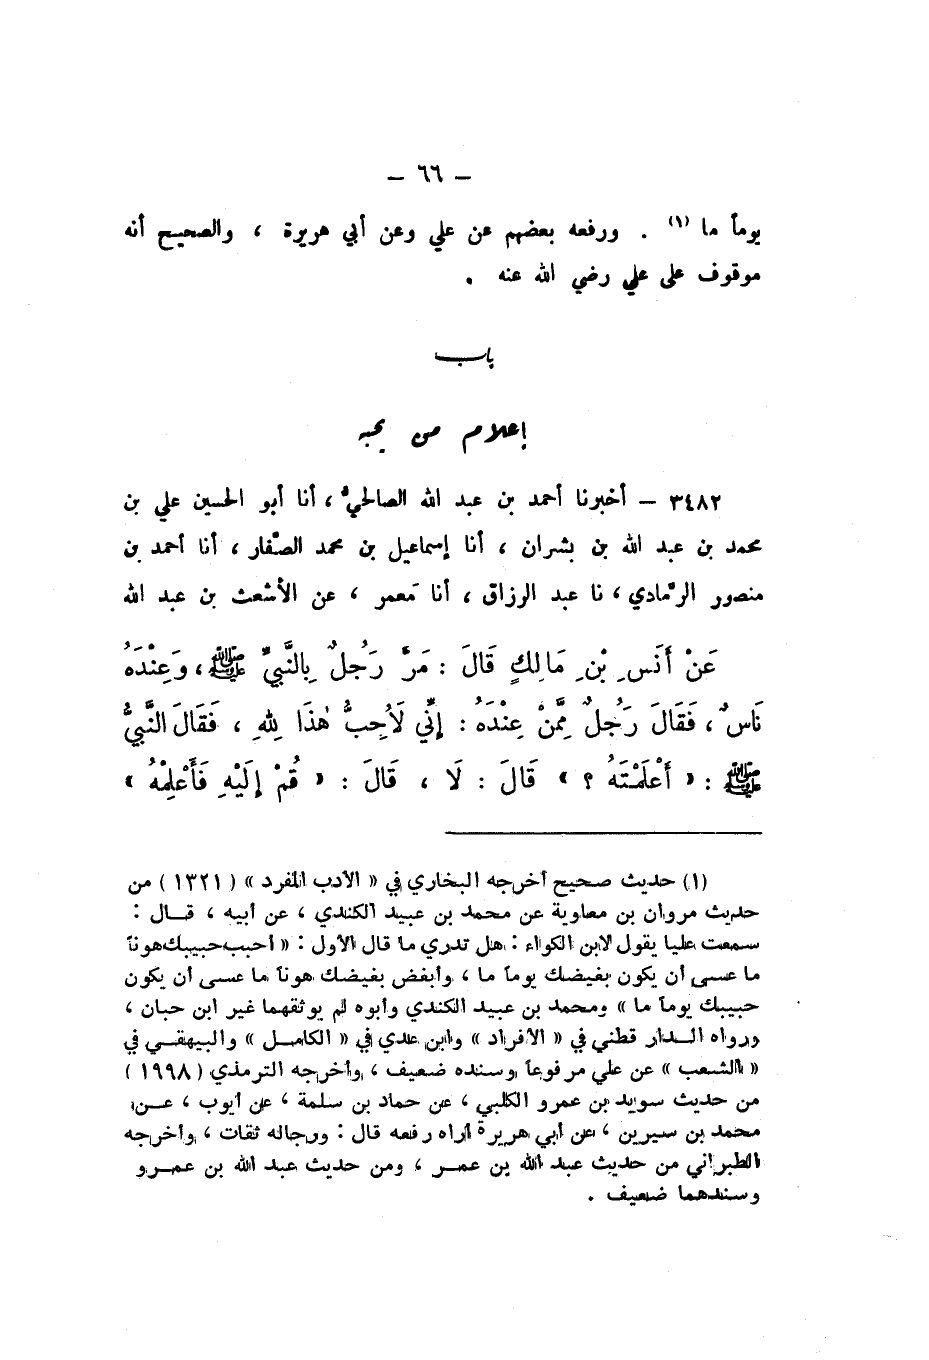 – ٦٦ –
يوماً ما (١) . ورفعه بعضهم عن علي وعن أبي هريرة ، والصحيح أنه
موقوف على علي رضي الله عنه .
باب
إعلام من يحبه
٣٤٨٢ – أخبرنا أحمد بن عبد الله الصالحيُّ ، أنا أبو الحسين علي بن
محمد بن عبد الله بن بشران ، أنا إسماعيل بن محمد الصَّفار ، أنا أحمد بن
منصور الرَّمادي ، نا عبد الرزاق ، أنا مَعمر ، عن الأشعث بن عبد الله
عَنْ أَنَسِ بْنِ مَالِكٍ قَالَ : مَرَّ رَجُلٌ بِالنَّبِيِّ ﷺ ، وَعِنْدَهُ
نَاسٌ ، فَقَالَ رَجُلٌ مِمَّنْ عِنْدَهُ : إِنِّي لَأُحِبُّ هٰذَا لِلهِ ، فَقَالَ النَّبِيُّ
ﷺ : « أَعْلَمْتَهُ ؟ » قَالَ : لَا ، قَالَ : « قُمْ إِلَيْهِ فَأَعْلِمْهُ »
(١) حديث صحيح أخرجه البخاري في « الأدب المفرد » (١٣٢١) من
حديث مروان بن معاوية عن محمد بن عبيد الكندي ، عن أبيه ، قال :
سمعت عليا يقول لابن الكواء : هل تدري ما قال الأول : « أحبب حبيبك هوناً
ما عسى أن يكون بغيضك يوماً ما ، وأبغض بغيضك هوناً ما عسى أن يكون
حبيبك يوماً ما » ومحمد بن عبيد الكندي وأبوه لم يوثقهما غير ابن حبان ،
ورواه الدار قطني في « الأفراد » وابن عدي في « الكامل » والبيهقي في
« الشعب » عن علي مرفوعاً وسنده ضعيف ، وأخرجه الترمذي (١٩٩٨)
من حديث سويد بن عمرو الكلبي ، عن حماد بن سلمة ، عن أيوب ، عن
محمد بن سيرين ، عن أبي هريرة أراه رفعه قال : ورجاله ثقات ، وأخرجه
الطبراني من حديث عبد الله بن عمر ، ومن حديث عبد الله بن عمرو
وسندهما ضعيف .